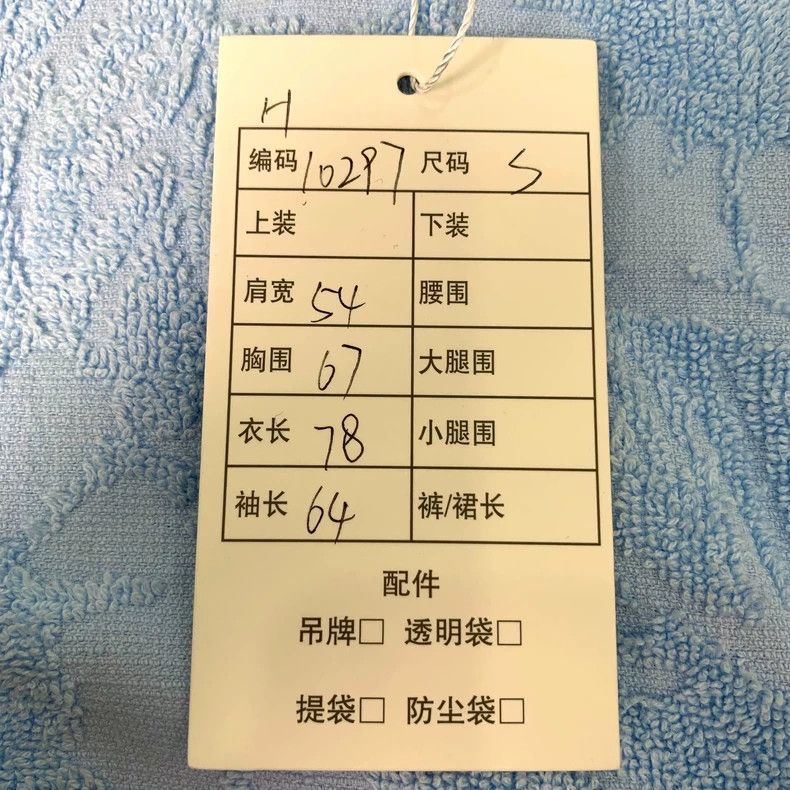 H
编码 10297 尺码 S
上装 下装
肩宽 54 腰围
胸围 67 大腿围
衣长 78 小腿围
袖长 64 裤/裙长
配件
吊牌□ 透明袋□
提袋□ 防尘袋□